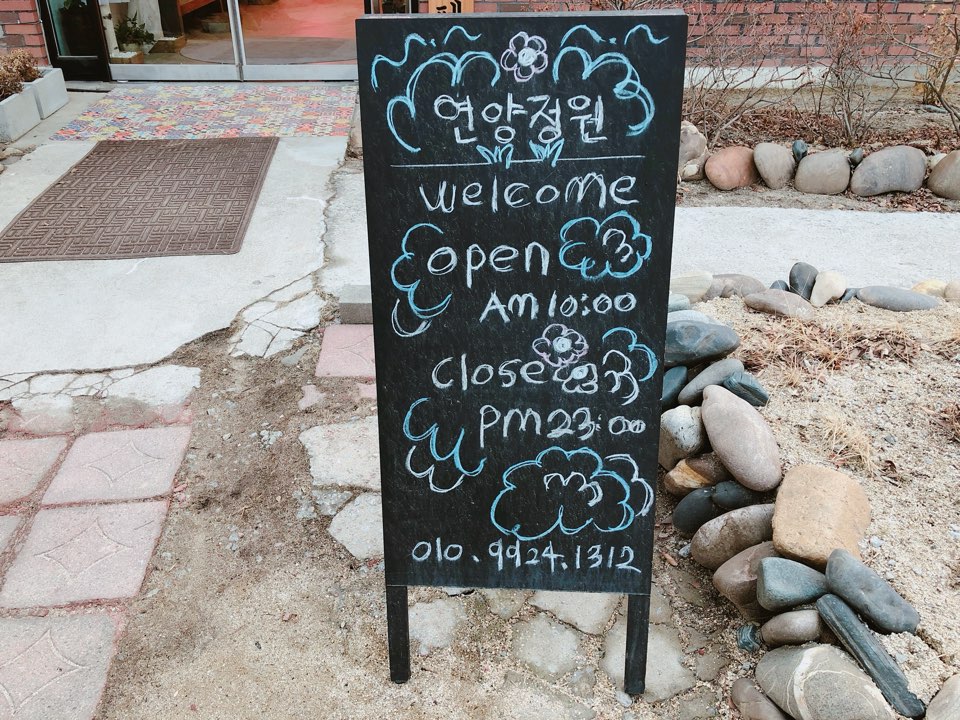 연양정원
welcome
open
Am 10:00
Close
pm 23:00
010.9924.1312